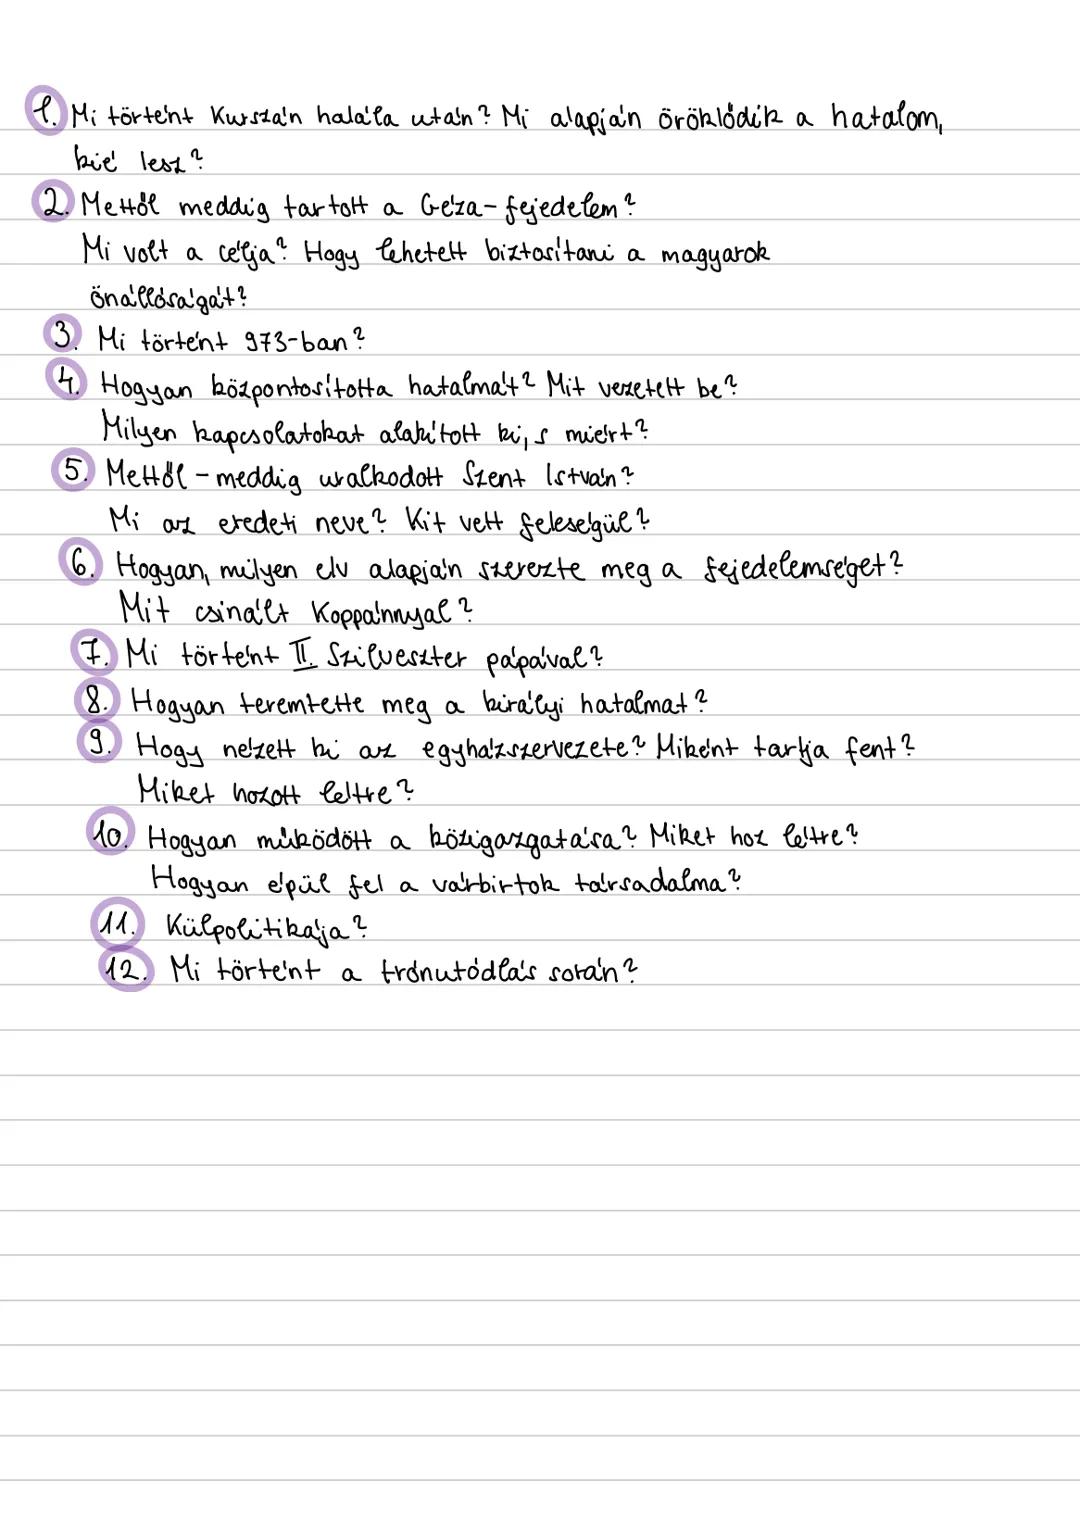 1. Mi történt Kurszán halála után? Mi alapján öröklődik a hatalom,
kié lesz?
2. Mettől meddig tartott a Géza-fejedelem?
Mi volt a célja? Hogy lehetett biztosítani a magyarok
önállóságát?
3. Mi történt 973-ban?
4. Hogyan központosította hatalmát? Mit vezetett be?
Milyen kapcsolatokat alakított ki, s miért?
5. Mettől-meddig uralkodott Szent István?
Mi az eredeti neve? Kit vett feleségül?
6. Hogyan, milyen elv alapján szerezte meg a fejedelemséget?
Mit csinált Koppánnyal?
7. Mi történt II. Szilveszter pápával?
8. Hogyan teremtette meg a királyi hatalmat?
9. Hogy nézett ki az egyházszervezete? Miként tartja fent?
Miket hozott létre?
10. Hogyan működött a közigazgatása? Miket hoz létre?
Hogyan épül fel a várbirtok társadalma?
11. Külpolitikája?
12. Mi történt a trónutódlás során?